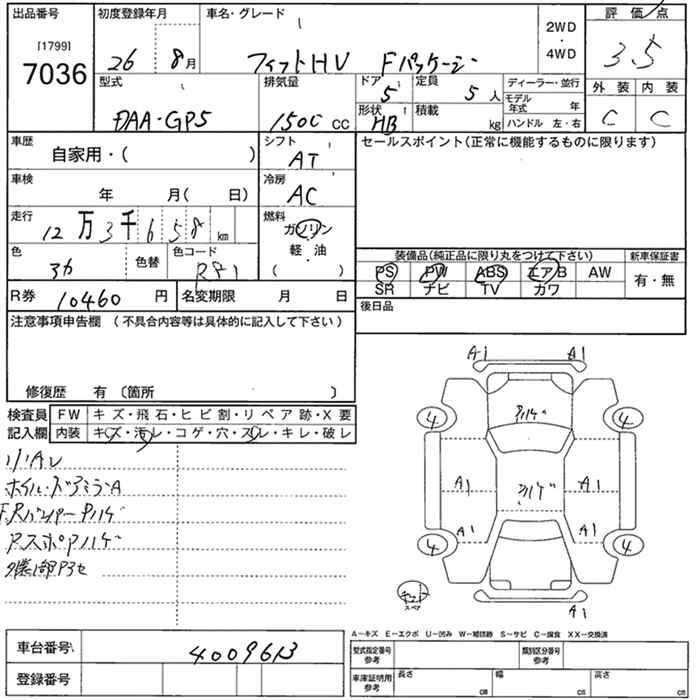 出品番号 初度登録年月 車名・グレード 評価点
[1799]
7036 26 8月 フィットHV Fパッケージ 2WD・4WD 3.5
型式 排気量 ドア 5 定員 5人 ディーラー・並行 外装 内装
DAA-GP5 1500 CC 形状 HB 積載 kg モデル年式 年 ハンドル 左・右 C C
車歴 自家用・( ) シフト AT セールスポイント(正常に機能するものに限ります)
車検 年 月( 日) 冷房 AC
走行 12万3千658km 燃料 ガソリン
軽・油
( )
色 色替 色コード 装備品(純正品に限り丸をつけて下さい) 新車保証書
PS PW ABS エアB AW 有・無
SR ナビ TV カワ
R券 10460円 名変期限 月 日 後日品
注意事項申告欄 (不具合内容等は具体的に記入して下さい)
修復歴 有 〔箇所 〕
検査員 FW キズ・飛石・ヒビ割・リペア跡・X要
記入欄 内装 キズ・汚レ・コゲ・穴・スレ・キレ・破レ
A1 A1
4 4
A1 A1
A1 A1
4 4
A1
スペア
A−キズ E−エクボ U−凹み W−補修跡 S−サビ C−腐食 XX−交換済
車台番号
登録番号
型式指定番号 参考 類別区分番号 参考
車庫証明用 参考 長さ cm 幅 cm 高さ cm